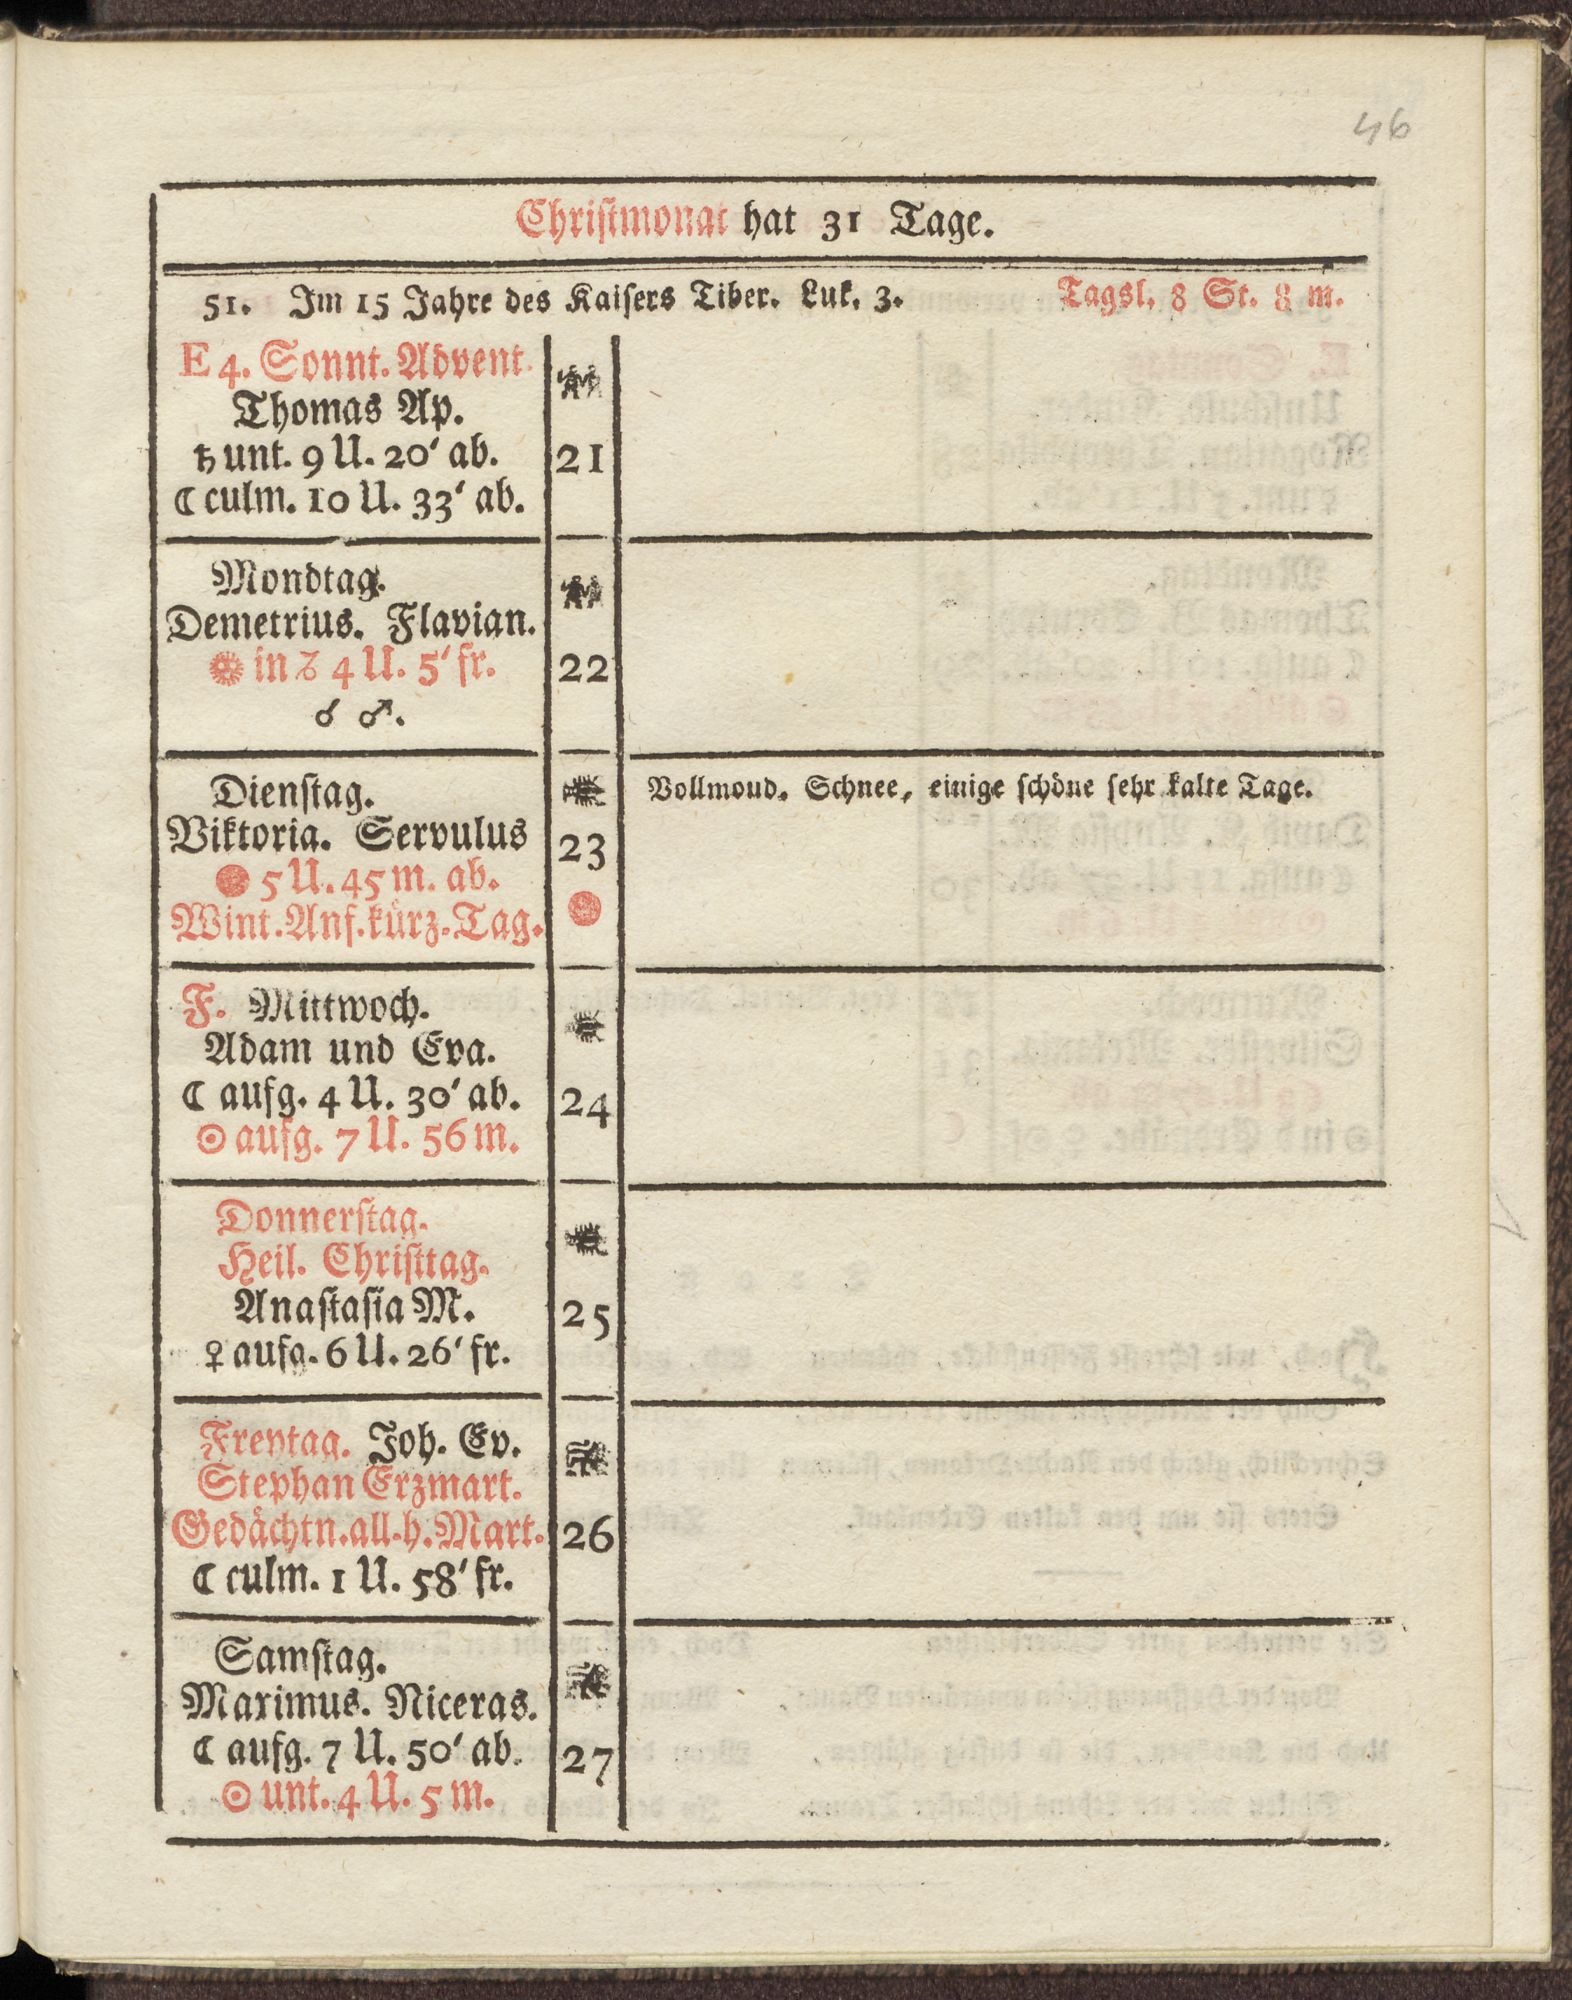 46
Christmonat hat 31 Tage.
51. Im 15 Jahre des Kaisers Tiber. Luk. 3. Tagsl. 8 St. 8 m.
E 4. Sonnt. Advent.
Thomas Ap.
♄ unt. 9 U. 20' ab. 21
☾ culm. 10 U. 33' ab.
Mondtag.
Demetrius. Flavian.
in ♑ 4 U. 5' fr. 22
☌ ♂.
Dienstag. Vollmond. Schnee, einige schöne sehr kalte Tage.
Viktoria. Servulus 23
5 U. 45 m. ab.
Wint. Anf. kürz. Tag.
F. Mittwoch.
Adam und Eva.
☾ aufg. 4 U. 30' ab. 24
☉ aufg. 7 U. 56 m.
Donnerstag.
Heil. Christtag.
Anastasia M. 25
♀ aufg. 6 U. 26' fr.
Freytag. Joh. Ev.
Stephan Erzmart.
Gedächtn. all. h. Mart. 26
☾ culm. 1 U. 58' fr.
Samstag.
Maximus. Niceras.
☾ aufg. 7 U. 50' ab. 27
☉ unt. 4 U. 5 m.